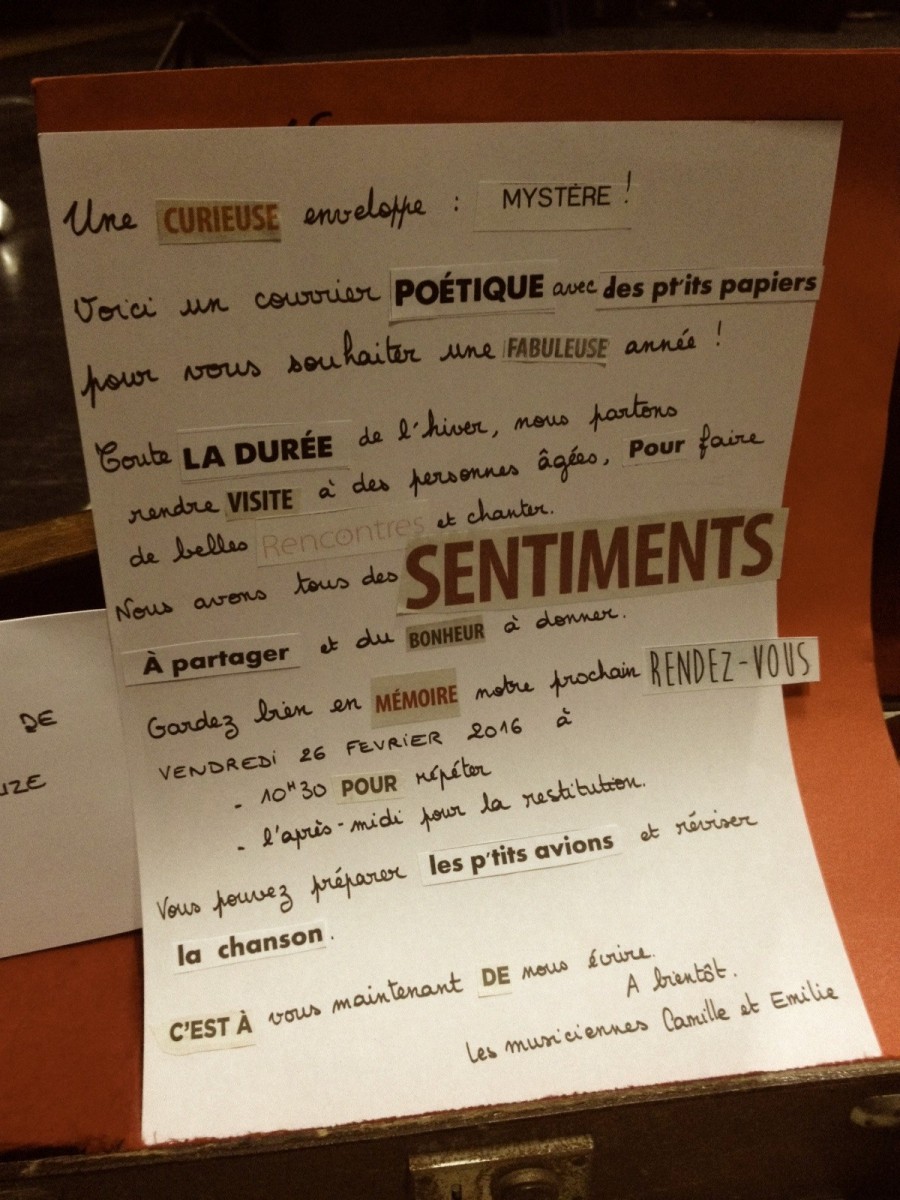 Une CURIEUSE enveloppe : MYSTÈRE !
Voici un courrier POÉTIQUE avec des pt'its papiers
pour vous souhaiter une FABULEUSE année !
Toute LA DURÉE de l'hiver, nous partons
rendre VISITE à des personnes âgées, Pour faire
de belles Rencontres et chanter.
Nous avons tous des SENTIMENTS
À partager et du BONHEUR à donner.
Gardez bien en MÉMOIRE notre prochain RENDEZ-VOUS
VENDREDI 26 FEVRIER 2016 à
- 10H30 POUR répéter
- l'après-midi pour la restitution.
Vous pouvez préparer les p'tits avions et réviser
la chanson.
C'EST À vous maintenant DE nous écrire.
A bientôt.
Les musiciennes Camille et Emilie
DE